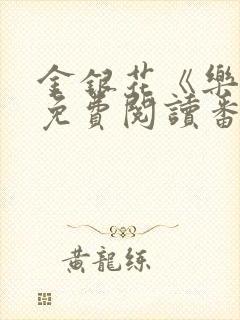 金銀花《樂
免費閱讀番
黃龍練